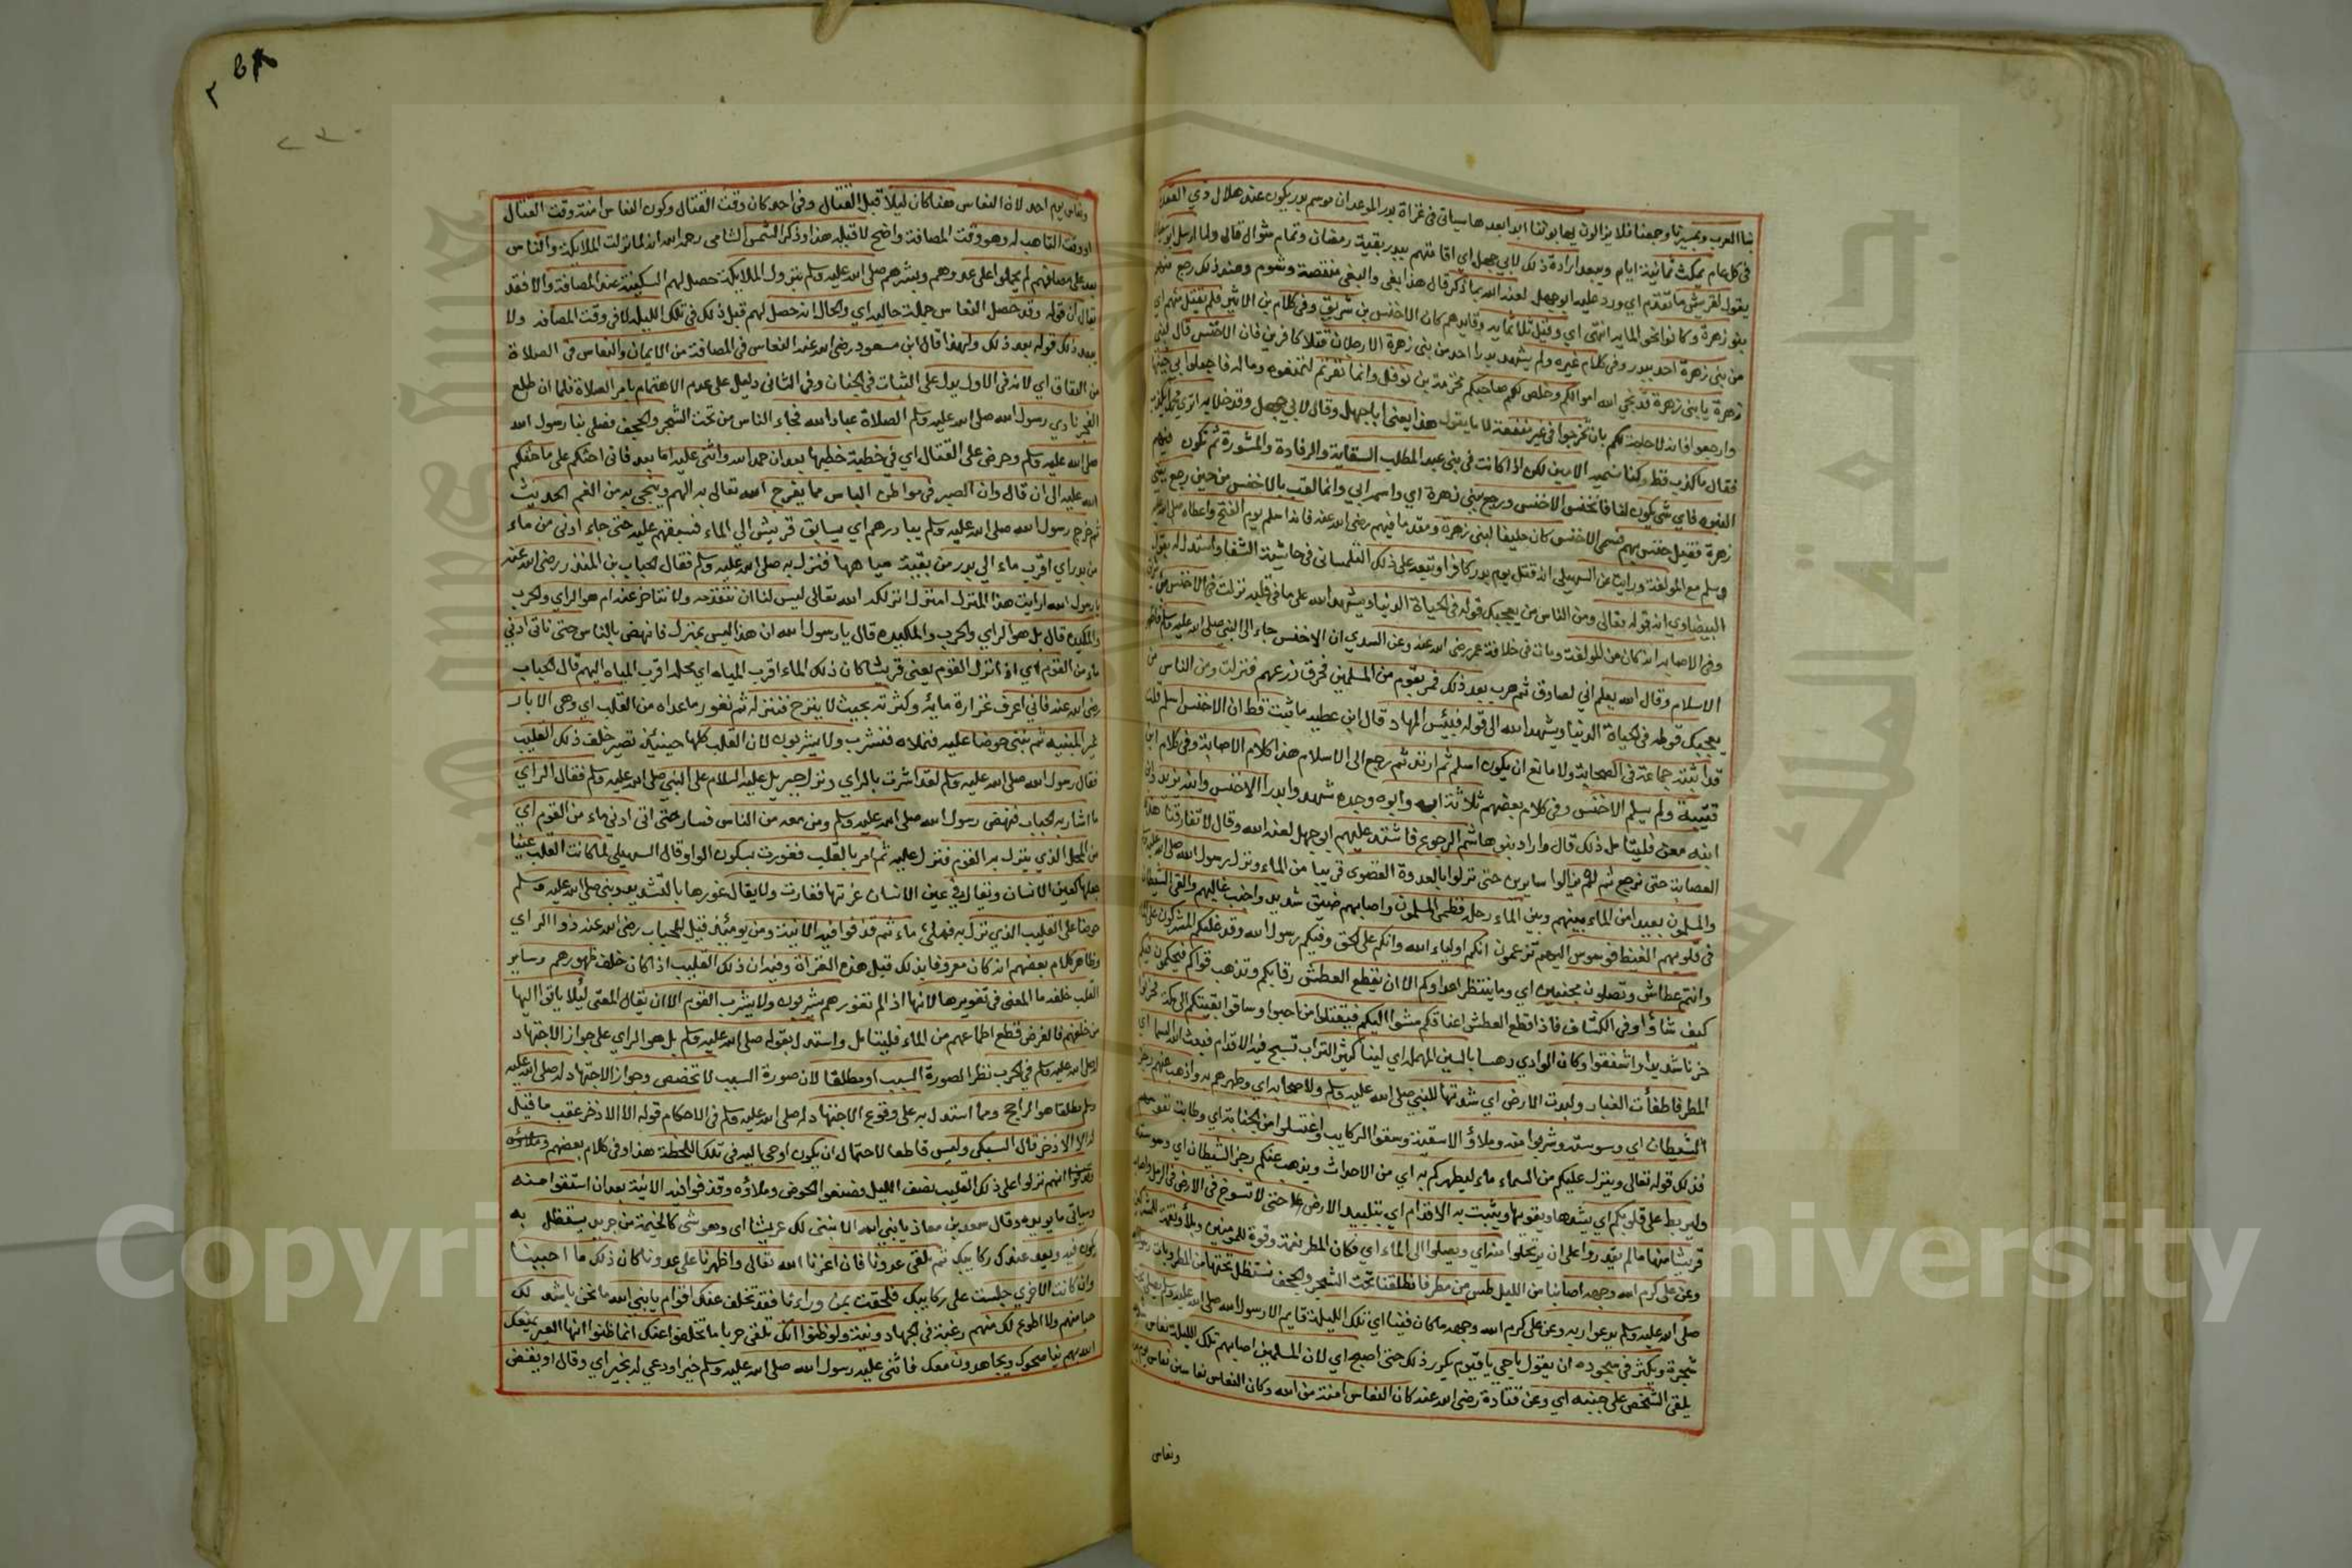 بنا العرب وبمسيرنا وجمعنا فلا يزالون يهابوننا ابدا بعدها سياتي في غزاة بدر الموعد ان موسم بدر يكون عند هلال ذي القعدة
في كل عام يمكث ثمانية ايام ويبعد ارادة ذلك لابي جهل اي اقامتهم ببدر بقية رمضان وتمام شوال قال ولما ارسل ابو سفيان
يقول لقريش ما تقدم اي ورد عليه ابو جهل لعنه الله بما ذكر قال هذا بغي والبغي منقصة وشوم وعند ذلك رجع
بنو زهرة وكانوا نحو الماية انتهى اي وقيل ثلاثماية وقايدهم كان الاخنس بن شريق وفي كلام بن الاثير فلم يقتل منهم اي
من بني زهرة احد ببدر وفي كلام غيره ولم يشهد بدرا احد من بني زهرة الا رجلان قتلا كافرين فان الاخنس قال لبني
زهرة يا بني زهرة قد نجى الله اموالكم وخلص لكم صاحبكم مخرمة بن نوفل وانما نفرتم لتمنعوه وماله فاجعلوا بي جبنها
وارجعوا فانه لا حاجة لكم بان تخرجوا في غير منفعة لا ما يقول هذا يعني ابا جهل وقال لابي جهل وقد خلا به اترى محمدا يكذب
فقال ما كذب قط وكنا نسميه الامين لكن اذا كانت في بني عبد المطلب السقاية والرفادة والمشورة ثم تكون فيهم
النبوة فاي شي يكون لنا فانخنس الاخنس ورجع ببني زهرة اي واسمه ابي وانما لقب بالاخنس من حين رجع ببني
زهرة فقيل خنس بهم فسمي الاخنس كان حليفا لبني زهرة ومقدما فيهم رضي الله عنه فانه اسلم يوم الفتح واعطاه صلى الله عليه
وسلم مع المولفة ورايت عن السهيلي انه قتل يوم بدر كافرا وتبعه على ذلك التلمساني في حاشية الشفا واستدل له بقول
البيضاوي انه قوله تعالى ومن الناس من يعجبك قوله في الحياة الدنيا ويشهد الله على ما في قلبه نزلت في الاخنس بن شريق
وفي الاصابة انه كان من المولفة ومات في خلافة عمر رضي الله عنه وعن السدي ان الاخنس جاء الى النبي صلى الله عليه وسلم فاظهر
الاسلام وقال الله يعلم اني لصادق ثم هرب بعد ذلك فمر بقوم من المسلمين فحرق زرعهم فنزلت ومن الناس من
يعجبك قوله في الحياة الدنيا ويشهد الله الى قوله فبيئس المهاد قال ابن عطية ما ثبت قط ان الاخنس اسلم قلت
قد اثبته جماعة في الصحابة ولا مانع ان يكون اسلم ثم ارتد ثم رجع الى الاسلام هذا كلام الاصابة وفي كلام ابن
قتيبة ولم يسلم الاخنس وفي كلام بعضهم ثلاثة ابه وابوه وجده شهدوا بدرا الاخنس وابنه يزيد وابن
ابنه معن فليتامل ذلك قال واراد بنو هاشم الرجوع فاشتد عليهم ابو جهل لعنه الله وقال لا تفارقنا هذه
العصابة حتى نرجع ثم لم يزالوا سايرين حتى نزلوا بالعدوة القصوى قريبا من الماء ونزل رسول الله صلى الله عليه وسلم
والمسلمون بعيدا من الماء بينهم وبين الماء رحلة فظمئ المسلمون واصابهم ضيق شديد واجنب غالبهم والقى الشيطان
في قلوبهم الغيظ فوسوس اليهم تزعمون انكم اولياء الله وانكم على الحق وفيكم رسول الله وقد غلبكم المشركون على الماء
وانتم عطاش وتصلون مجنبين اي وما ينتظر اعداوكم الا ان يقطع العطش رقابكم وتذهب قواكم فيحكموا فيكم
كيف شاؤا وفي الكشاف فاذا قطع العطش اعناقكم مشوا اليكم فيقتلوا من احبوا وساقوا بقيتكم الى مكة فحزنوا
حزنا شديدا واشفقوا وكان الوادي دهسا بالسين المهملة اي لينا كثير التراب تسيخ فيه الاقدام فبعث الله السما اي
المطر فاطفأت الغبار ولبدت الارض اي شدتها للنبي صلى الله عليه وسلم ولاصحابه اي وطهرهم به واذهب عنهم رجز
الشيطان اي وسوسته وشربوا منه وملاؤا الاسقية وسقوا الركايب واغتسلوا من الجنابة اي وطابت نفوسهم
فذلك قوله تعالى وينزل عليكم من السماء ماء ليطهركم به اي من الاحداث ويذهب عنكم رجز الشيطان اي وسوسته
وليربط على قلوبكم اي يشدها ويقويها ويثبت به الاقدام اي بتلبيد الارض حتى لا تسوخ في الارض
قريشا منها ما لم يقدروا على ان يرتحلوا منه اي ويصلوا الى الماء اي فكان المطر نعمة وقوة للمومنين وبلاء ونقمة للمشركين
وعن علي كرم الله وجهه اصابنا من الليل طس من مطر فانطلقنا تحت الشجر والحجف نستظل تحتها من المطر وبات رسول الله
صلى الله عليه وسلم يدعو ربه وعن علي كرم الله وجهه ما كان فينا اي تلك الليلة قايم الا رسول الله صلى الله عليه وسلم يصلي تحت
شجرة ويكثر في سجوده ان يقول يا حي يا قيوم يكرر ذلك حتى اصبح اي لان المسلمين اصابهم تلك الليلة نعاس شديد
يلقى الشخص على جنبه اي وعن قتادة رضي الله عنه كان النعاس امنة من الله وكان النعاس نعاسين نعاس يوم بدر
ونعاس
ونعاس يوم احد لان النعاس هنا كان ليلا قبل القتال وفي احد كان وقت القتال وكون النعاس امنة وقت القتال
او وقت التاهب له وهو وقت المصافة واضح لا قبله هذا وذكر الشمس الشامي رحمه الله انه لما نزلت الملايكة والناس
بعد على مصافهم لم يحملوا على عدوهم وبشرهم صلى الله عليه وسلم بنزول الملايكة حصل لهم السكينة عند المصافة والا فقد
يقال ان قوله وقد حصل النعاس جملة حالية اي والحال انه حصل لهم قبل ذلك في تلك الليلة لا في وقت المصافة ولا
يبعد ذلك قوله بعد ذلك ولهذا قال ابن مسعود رضي الله عنه النعاس في المصافة من الايمان والنعاس في الصلاة
من النفاق اي لانه في الاول يدل على الثبات في الجنان وفي الثاني دليل على عدم الاهتمام بامر الصلاة فلما ان طلع
الفجر نادي رسول الله صلى الله عليه وسلم الصلاة عباد الله فجاء الناس من تحت الشجر والحجف فصلى بنا رسول الله
صلى الله عليه وسلم وحرض على القتال اي في خطبة خطبها بعد ان حمد الله واثنى عليه اما بعد فاني احثكم على ما حثكم
الله عليه الى ان قال وان الصبر في مواطن الباس مما يفرج الله تعالى به الهم وينجي به من الغم الحديث
ثم خرج رسول الله صلى الله عليه وسلم يبادرهم اي يسابق قريش الي الماء فسبقهم عليه حتى جاء ادنى من ماء
من بدر اي اقرب ماء الي بدر من بقية مياهها فنزل به صلى الله عليه وسلم فقال الحباب بن المنذر رضي الله عنه
يا رسول الله ارايت هذا المنزل امنزل انزلكه الله تعالى ليس لنا ان نتقدمه ولا نتاخر عنه ام هو الراي والحرب
والمكيدة قال بل هو الراي والحرب والمكيدة قال يا رسول الله ان هذا ليس بمنزل فانهض بالناس حتى ناتي ادني
ماء من القوم اي اذا نزل القوم يعني قريشا كان ذلك الماء اقرب المياه اي محله اقرب المياه اليهم قال الحباب
رضي الله عنه فاني اعرف غزارة مايه وكثرته بحيث لا ينزح فننزله ثم نغور ما عداه من القلب اي وهي الابار
غير المبنية ثم نبني حوضا عليه فنملاه فنشرب ولا يشربون لان القلب كلها حينئذ تصير خلف ذلك القليب
فقال رسول الله صلى الله عليه وسلم لقد اشرت بالراي ونزل جبريل عليه السلام على النبي صلى الله عليه وسلم فقال الراي
ما اشار به الحباب فنهض رسول الله صلى الله عليه وسلم ومن معه من الناس فسار حتى اتى ادنى ماء من القوم اي
من المحل الذي ينزل به القوم فنزل عليه ثم امر بالقليب فغورت بسكون الواو قال السهيلي لما كانت القلب عينا
جعلها كعين الانسان ويقال في عين الانسان غرتها فغارت ولا يقال غورها بالتشديد وبنى صلى الله عليه وسلم
حوضا على القليب الذي نزل به فملئ ماء ثم قذفوا فيه الانية ومن يومئذ قيل للحباب رضي الله عنه ذو الراي
وظاهر كلام بعضهم انه كان معروفا بذلك قبل هذه الغزاة وفيه ان ذلك القليب اذا كان خلف ظهورهم وساير
القلب خلفه ما المعنى في تغويرها لانها اذا لم تغور هم يشربون ولا يشرب القوم الا ان يقال المعنى ليلا ياتوا اليها
من خلفهم فالغرض قطع اطماعهم من الماء فليتامل واستدل بقوله صلى الله عليه وسلم بل هو الراي على جواز الاجتهاد
له صلى الله عليه وسلم في الحرب نظرا لصورة السبب او مطلقا لان صورة السبب لا تخصص وجواز الاجتهاد له صلى الله عليه
وسلم مطلقا هو الراجح ومما استدل به على وقوع الاجتهاد له صلى الله عليه وسلم في الاحكام قوله الا الاذخر عقب ما قيل
له الا الاذخر قال السبكي وليس قاطعا لاحتمال ان يكون اوحي اليه في تلك اللحظة هذا وفي كلام بعضهم
انهم نزلوا على ذلك القليب نصف الليل وصنعوا الحوض وملاؤه وقذفوا فيه الانية بعد ان استقوا منه
وسياتي ما يويده وقال سعد بن معاذ يا نبي الله الا نبني لك عريشا اي وهو شي كالخيمة من جريد يستظل به
تكون فيه ونعد عندك ركايبك ثم نلقى عدونا فان اعزنا الله تعالى واظهرنا على عدونا كان ذلك ما احببنا
وان كانت الاخري جلست على ركايبك فلحقت بمن وراءنا فقد تخلف عنك اقوام يا نبي الله ما نحن باشد لك
حبا منهم ولا اطوع لك منهم رغبة في الجهاد ونية ولو ظنوا انك تلقى حربا ما تخلفوا عنك انما ظنوا انها العير يمنعك
الله بهم يناصحوك ويجاهدون معك فاثنى عليه رسول الله صلى الله عليه وسلم خيرا ودعي له بخير اي وقال او يقضى
Copyright © King Saud University